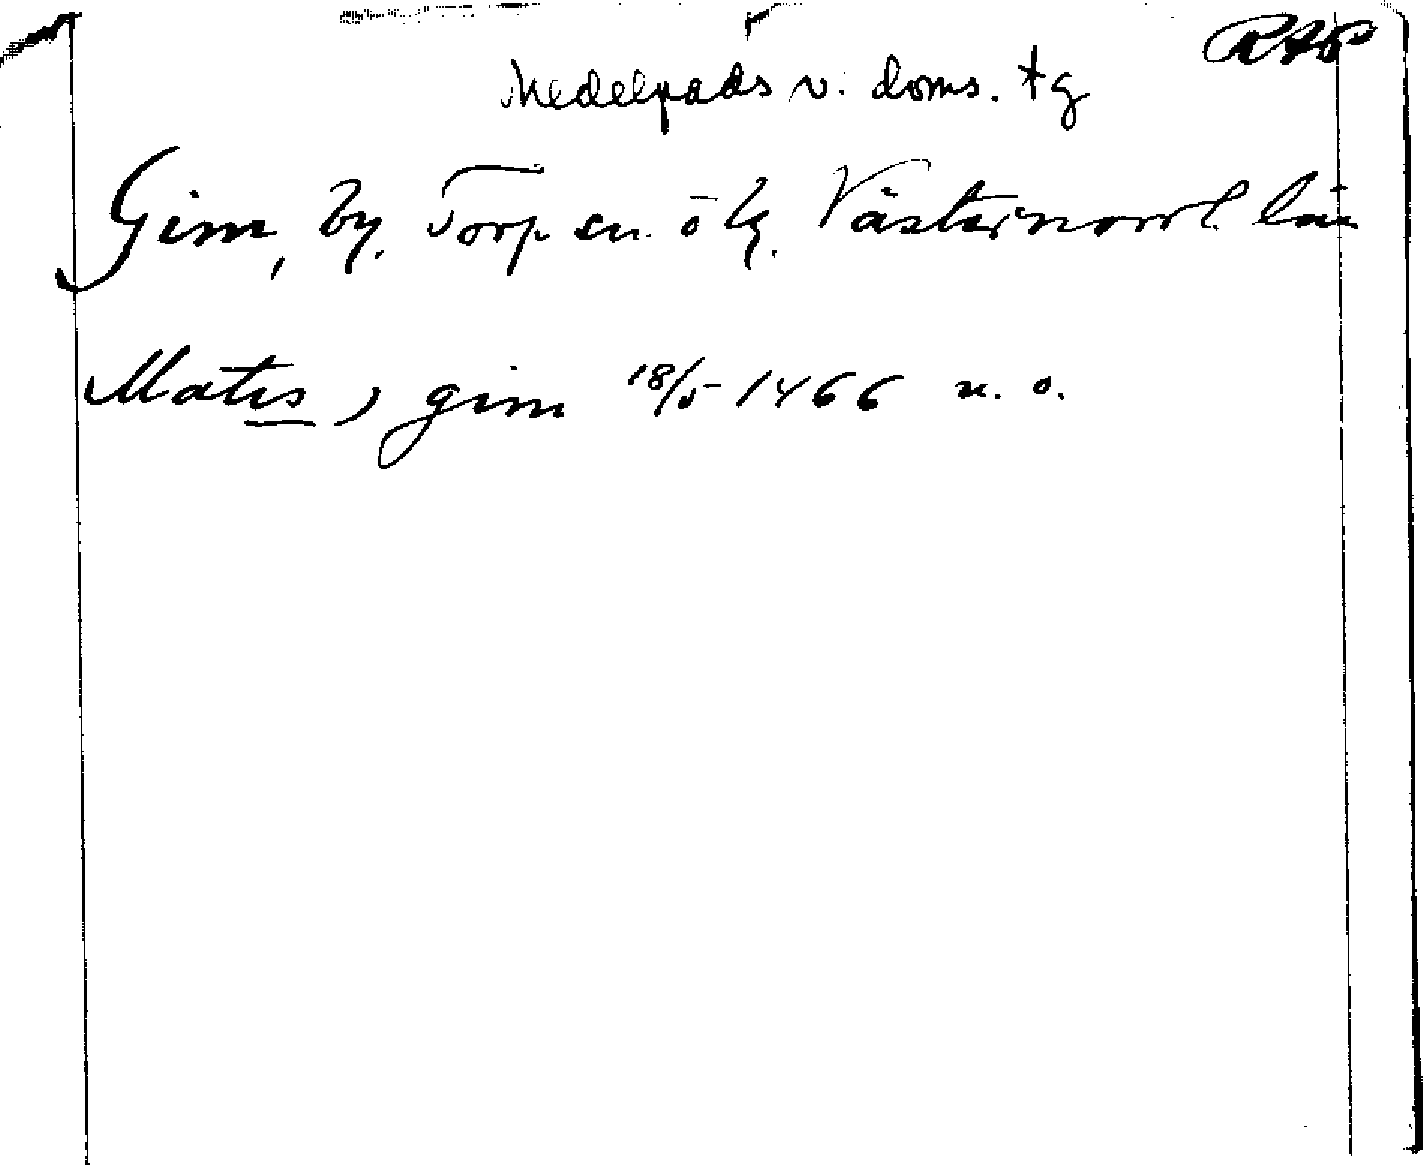 RAP
Medelpads v. doms. tg
Gim, by. Torp sn. o tg. Västernorrl. län
Matis, gim 18/5 1466 u. o.